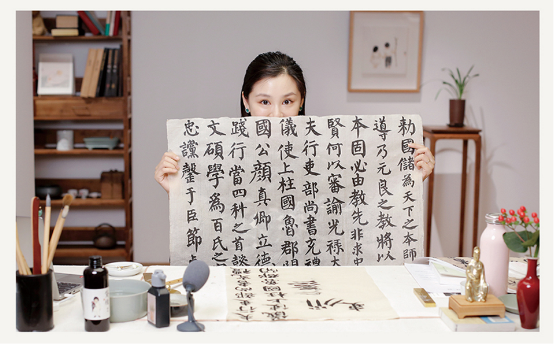 勅國儲為天下之本師
導乃元良之教將以
本固必由教先非求忠
賢何以審諭光祿大
夫行吏部尚書充禮
儀使上柱國魯郡
國公顏真卿立德
踐行當四科之首懿
文碩學為百氏之
忠讜罄于臣節